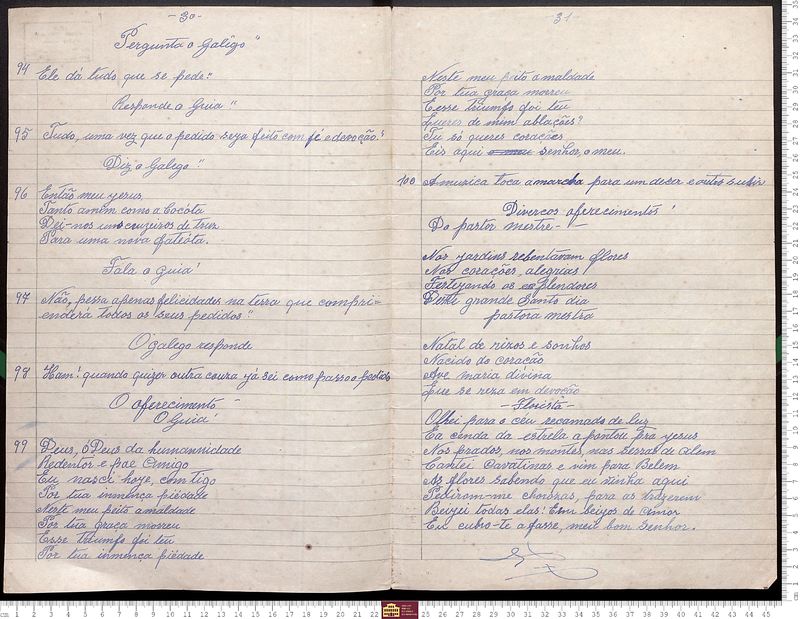 -30-
Pergunta o Galêgo"
94 Ele dá tudo que se pede."
Responde o Guia"
95 Tudo, uma vez que o pedido seja feito com fé e devoção."
Diz o Galego"
96 Então meu yerus
Tanto amem como a Cocóta
Dei-nos uns cruzeiros de truz
Para uma nova fatéóta.
Fala o Guia!
97 Não, pessa apenas felicidades na terra que compri-
enderá todos os seus pedidos."
O galego responde
98 Ham! quando quizer outra couza já sei como passo o partido
O oferecimento -
O Guia!
99 Deus, ó Deus da humannidade
Redentor e pae Amigo
Eu nasci hoje, com tigo
Por tua inmença piédade
Neste meu peito a maldade
Por tua graça morreu
Esse triumfo foi teu
Por tua inmença piédade
31-
Neste meu peito a maldade
Por tua graça morreu
E esse triumfo foi teu
Queres de mim ablações?
Tu só queres corações
Eis aqui senhor, o meu.
100 A muzica toca a marcha para um decer e outro subir
Divercos oferecimentos!
Do pastor mestre -
Nos jardins rebentavam flores
Nos corações, alegrias
Festejando os esplendores
Deste grande Santo dia
pastora mestra
Natal de rizos e sonhos
Nacido do coração
Ave maria divina
Que se reza em devoção
- Florista -
Olhei para o céu recamado de luz
Ea cenda da estrela a pontou pra yesus
Nos prados, nos montes, nas serras de Alem
Cantei Cavatinas e vim para Belem
As flores sabendo que eu vinha aqui
Pedirom-me chorozas, para as trazerem
Beijei todas elas! Em beijos de Amor
Eu cubro-te a fasse, meu bom Senhor.